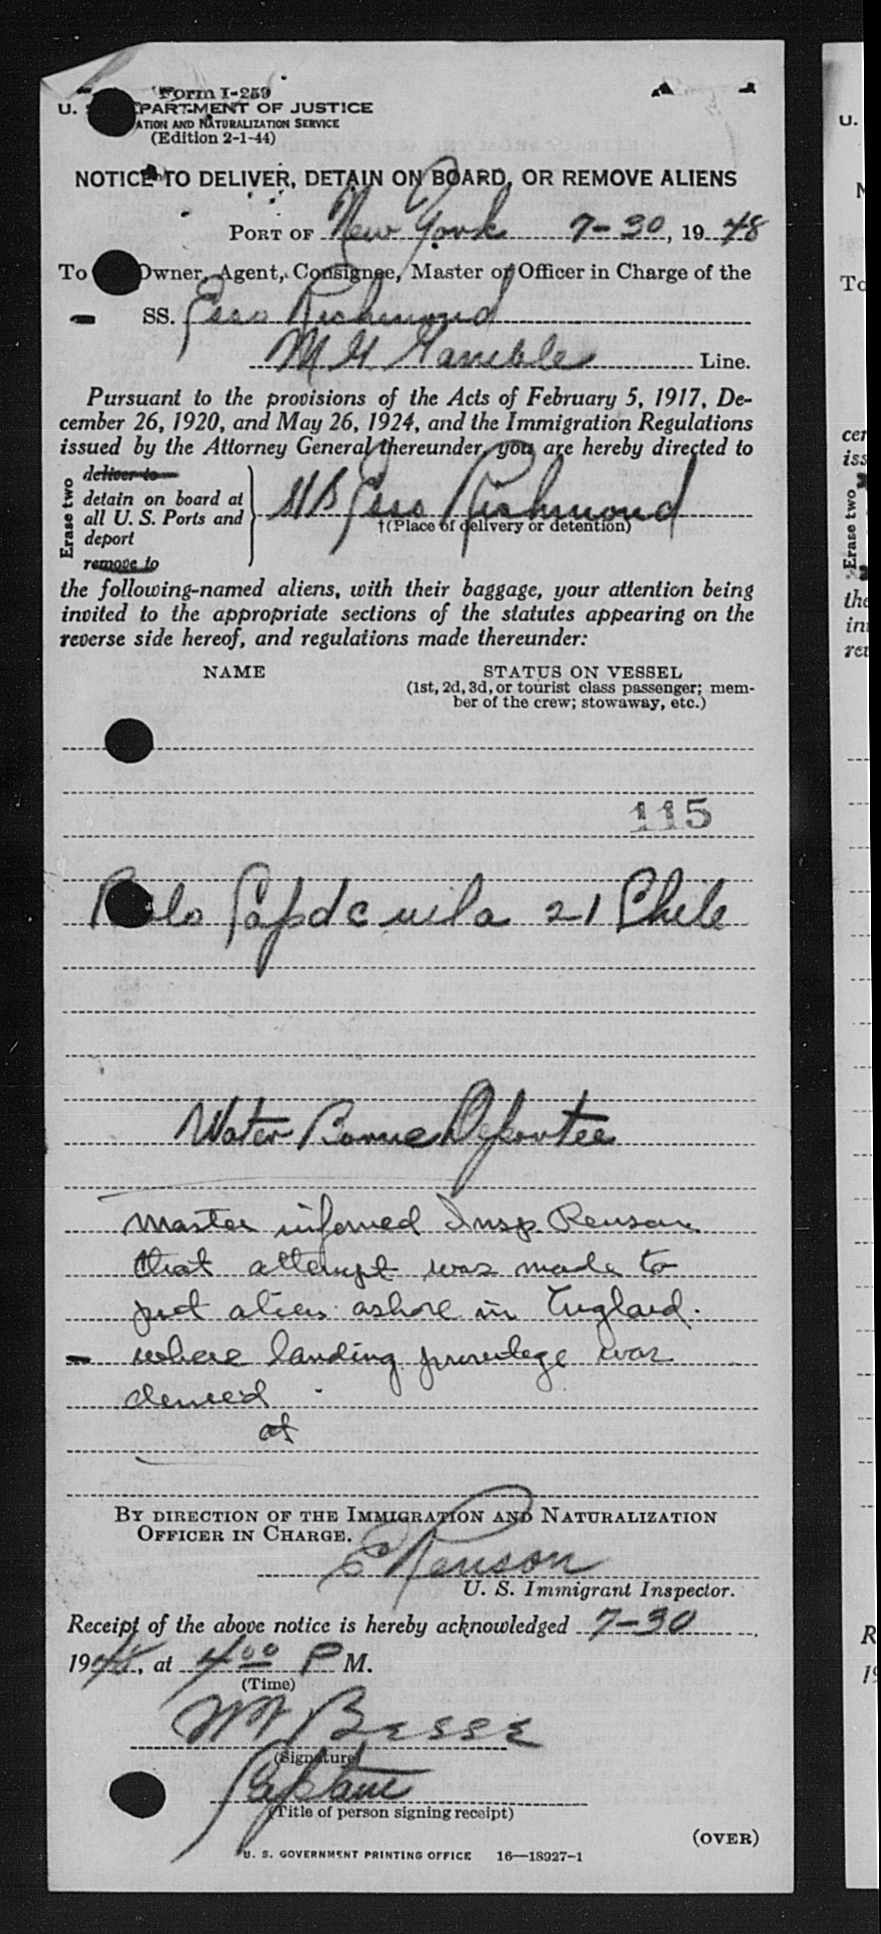 Form I-259
U. S. DEPARTMENT OF JUSTICE
ATION AND NATURALIZATION SERVICE
(Edition 2-1-44)
NOTICE TO DELIVER, DETAIN ON BOARD, OR REMOVE ALIENS
PORT OF New York 7-30, 1948
To Owner, Agent, Consignee, Master or Officer in Charge of the
SS. Esso Richmond
M G Gamble Line.
Pursuant to the provisions of the Acts of February 5, 1917, De-
cember 26, 1920, and May 26, 1924, and the Immigration Regulations
issued by the Attorney General thereunder, you are hereby directed to
Erase two
deliver to
detain on board at
all U. S. Ports and
deport
remove to
Esso Richmond
†(Place of delivery or detention)
the following-named aliens, with their baggage, your attention being
invited to the appropriate sections of the statutes appearing on the
reverse side hereof, and regulations made thereunder:
NAME STATUS ON VESSEL
(1st, 2d, 3d, or tourist class passenger; mem-
ber of the crew; stowaway, etc.)
115
Capdevila 21 Chile
Water Borne Deportee
Master informed Insp. Renson
that attempt was made to
put alien ashore in England.
where landing privilege was
denied
BY DIRECTION OF THE IMMIGRATION AND NATURALIZATION
OFFICER IN CHARGE.
E Renson
U. S. Immigrant Inspector.
Receipt of the above notice is hereby acknowledged 7-30
1948, at 4 00 P M.
(Time)
Besse
(Signature)
Captain
(Title of person signing receipt)
(OVER)
U. S. GOVERNMENT PRINTING OFFICE 16—18927-1